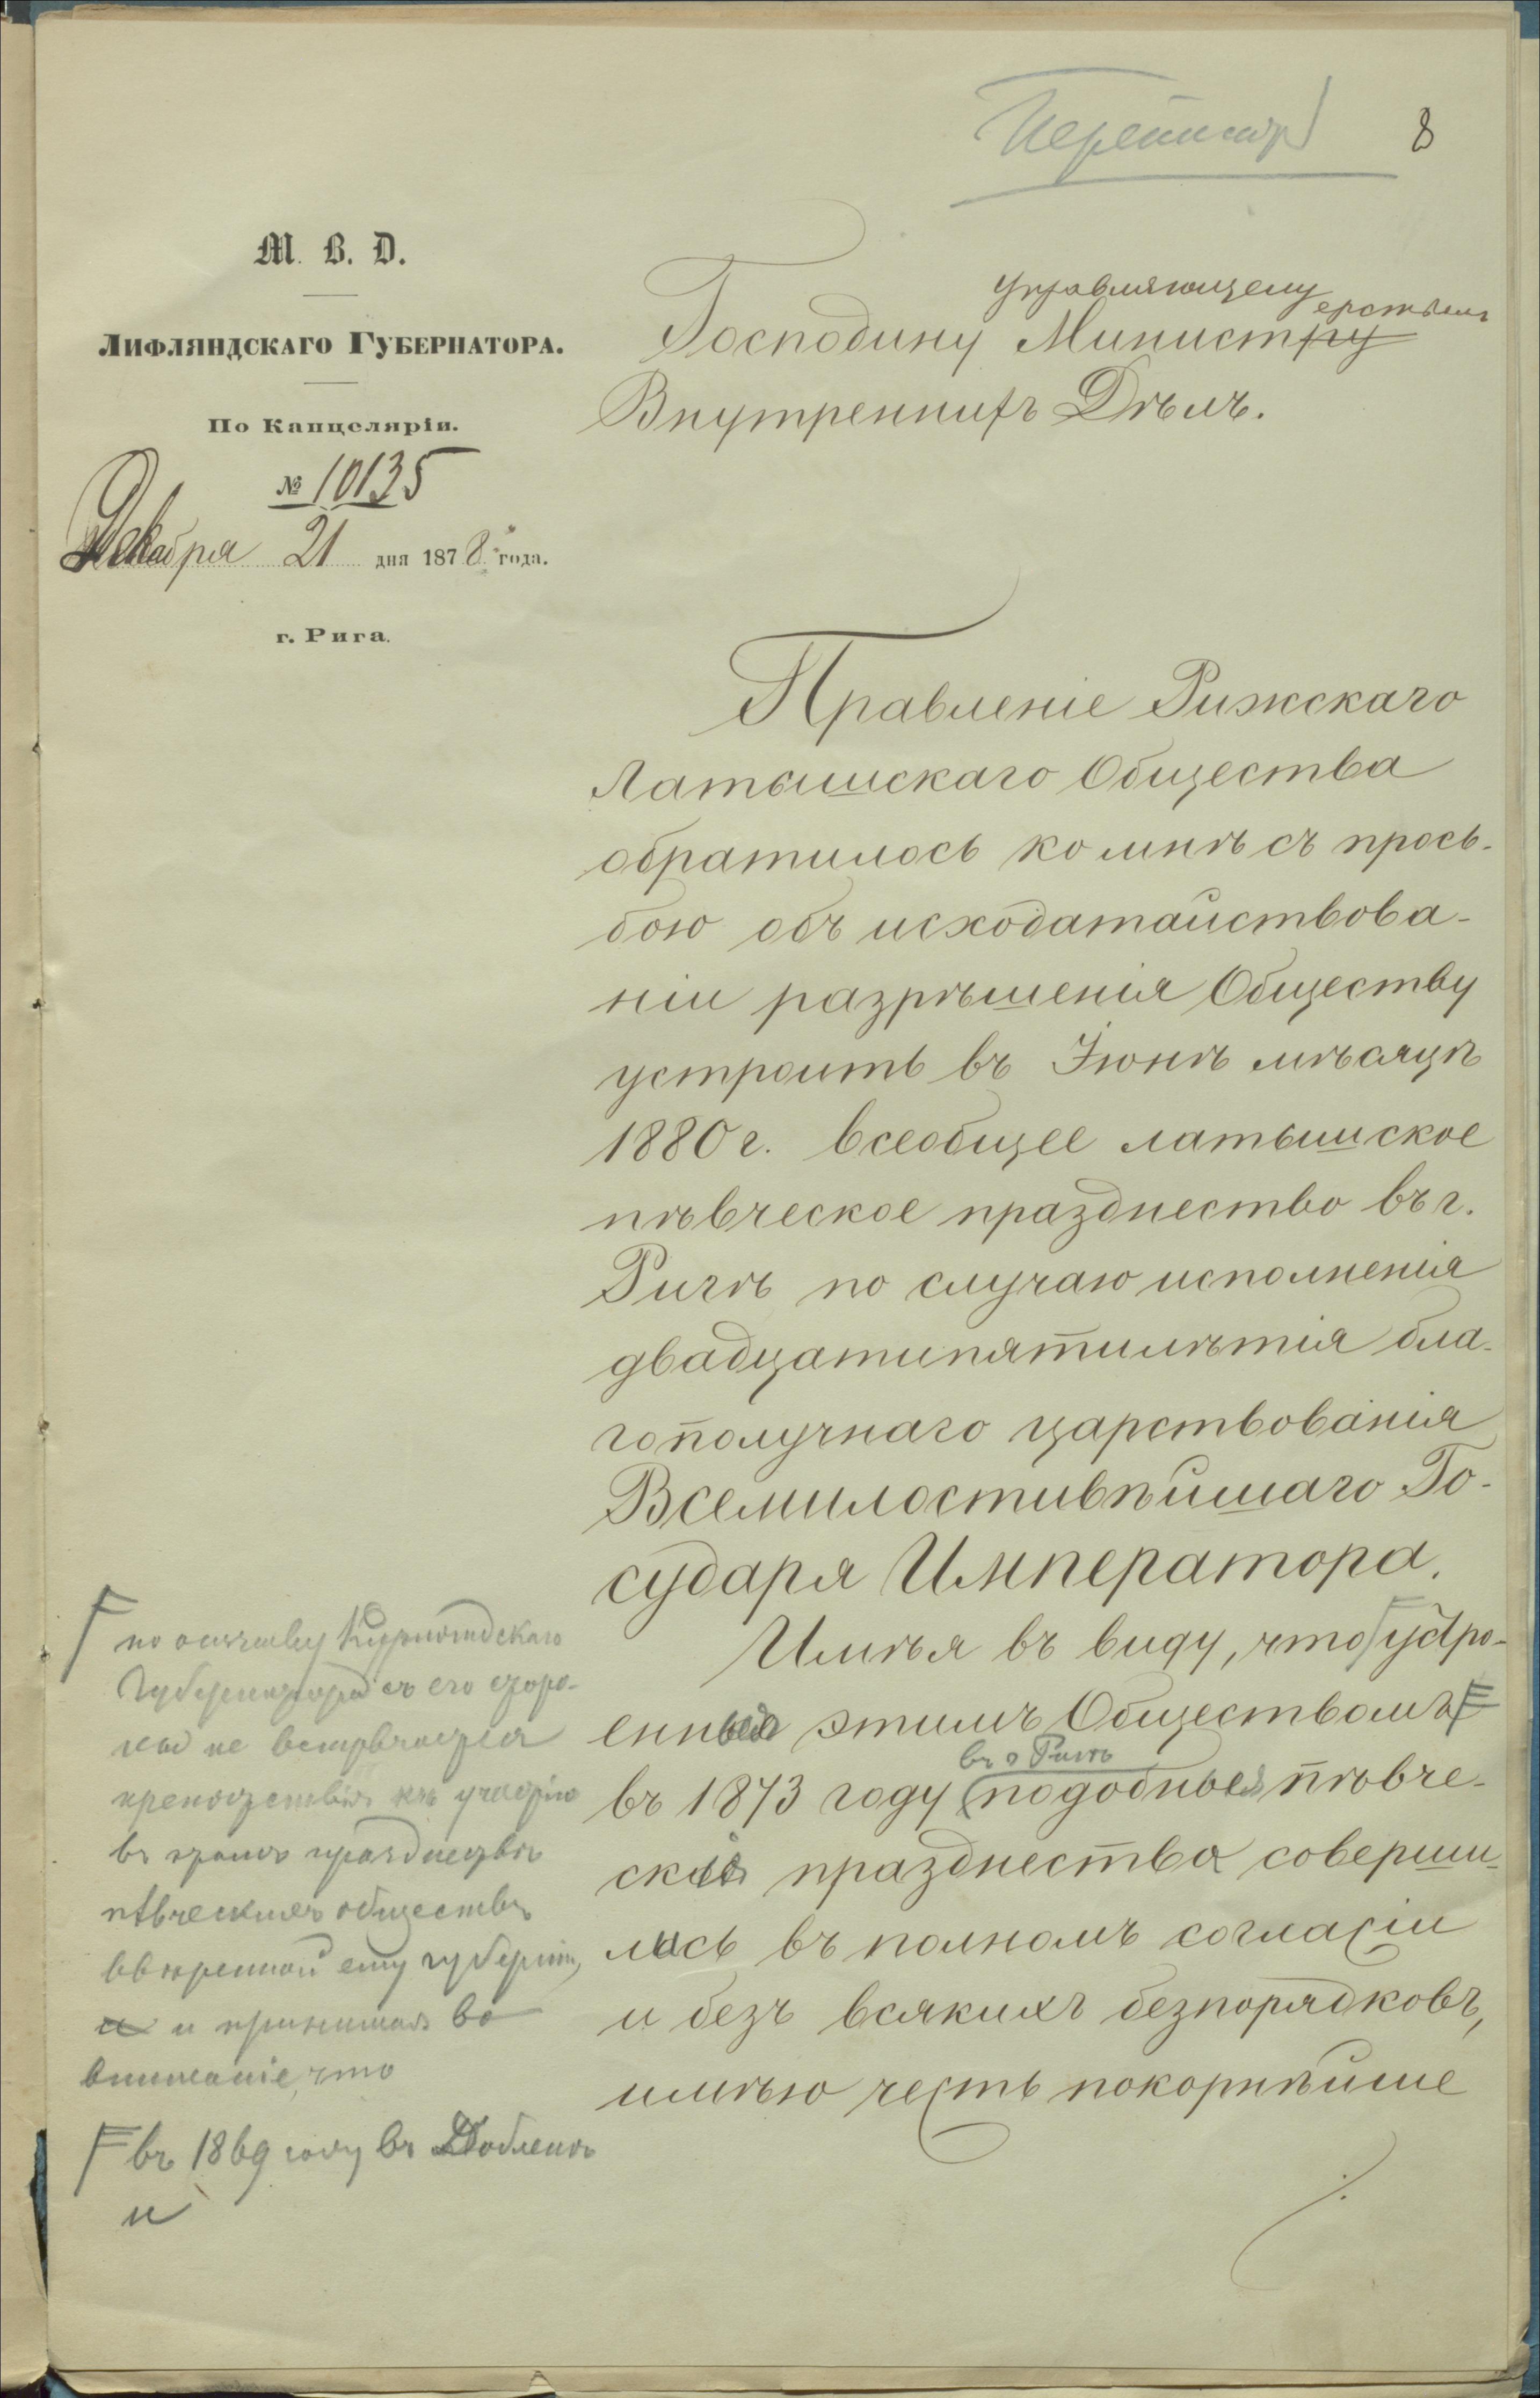 8
М. В. Д.
Лифляндскаго Губернатора.
По Канцеляріи.
№ 10135
Декабря 21 дня 1878 года.
г. Рига.
управляющему
Господину Министру ерствомъ
Внутреннихъ Дѣлъ.
Правленіе Рижскаго
Латышскаго Общества
обратилось ко мнѣ съ прось-
бою объ исходатайствова-
ніи разрѣшенія Обществу
устроить въ Іюнѣ мѣсяцѣ
1880 г. всеобщее латышское
пѣвческое празднество въ г.
Ригѣ по случаю исполненія
двадцатипятилѣтія бла-
гополучнаго царствованія
Всемилостивѣйшаго Го-
сударя Императора.
Имѣя въ виду, что устро-
енныя этимъ Обществомъ
въ г. Ригѣ
въ 1873 году подобныя пѣвче-
скія празднества соверши-
лись въ полномъ согласіи
и безъ всякихъ безпорядковъ,
имѣю честь покорнѣйше
по отзыву Курляндскаго
Губернатора съ его сторо-
ны не встрѣчается
препятствія къ участію
въ этомъ празднествѣ
пѣвческихъ обществъ
ввѣренной ему губерніи,
и и принимая во
вниманіе, что
въ 1869 году въ Добленѣ
и